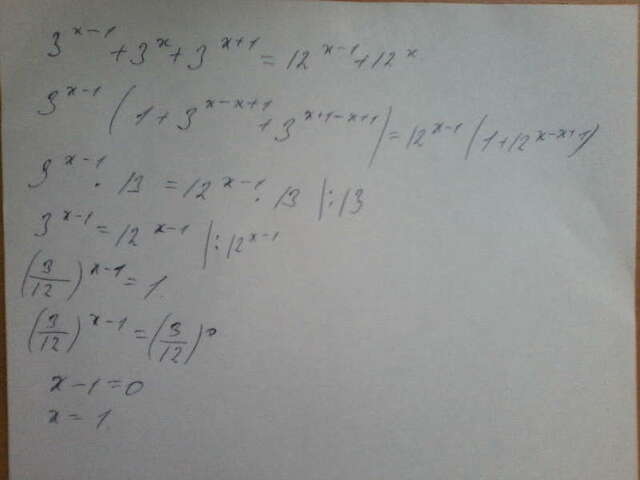 3^{x-1} + 3^x + 3^{x+1} = 12^{x-1} + 12^x
3^{x-1} (1 + 3^{x-x+1} + 3^{x+1-x+1}) = 12^{x-1} (1 + 12^{x-x+1})
3^{x-1} · 13 = 12^{x-1} · 13 | : 13
3^{x-1} = 12^{x-1} | : 12^{x-1}
(3/12)^{x-1} = 1
(3/12)^{x-1} = (3/12)^0
x - 1 = 0
x = 1